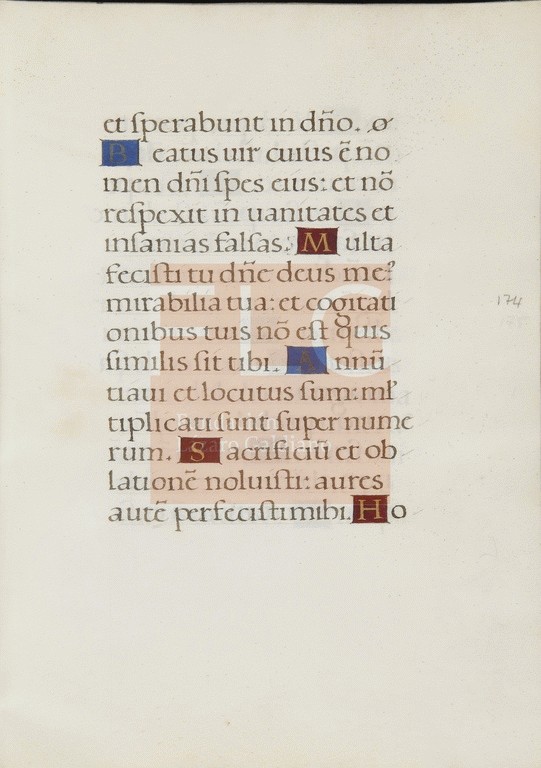 et ſperabunt in dño.
Beatus uir cuius ē no
men dñi ſpes eius: et nō
reſpexit in uanitates et
inſanias falſas. Multa
feciſti tu dñe deus me²
mirabilia tua: et cogitati
onibus tuis nō eſt quis
ſimilis ſit tibi. Annū
tiaui et locutus ſum: ml̃
tiplicati ſunt ſuper nume
rum. Sacrificiū et ob
lationē noluiſti: aures
autē perfeciſti mihi. Ho
174
FLG
Lázaro Galdiano